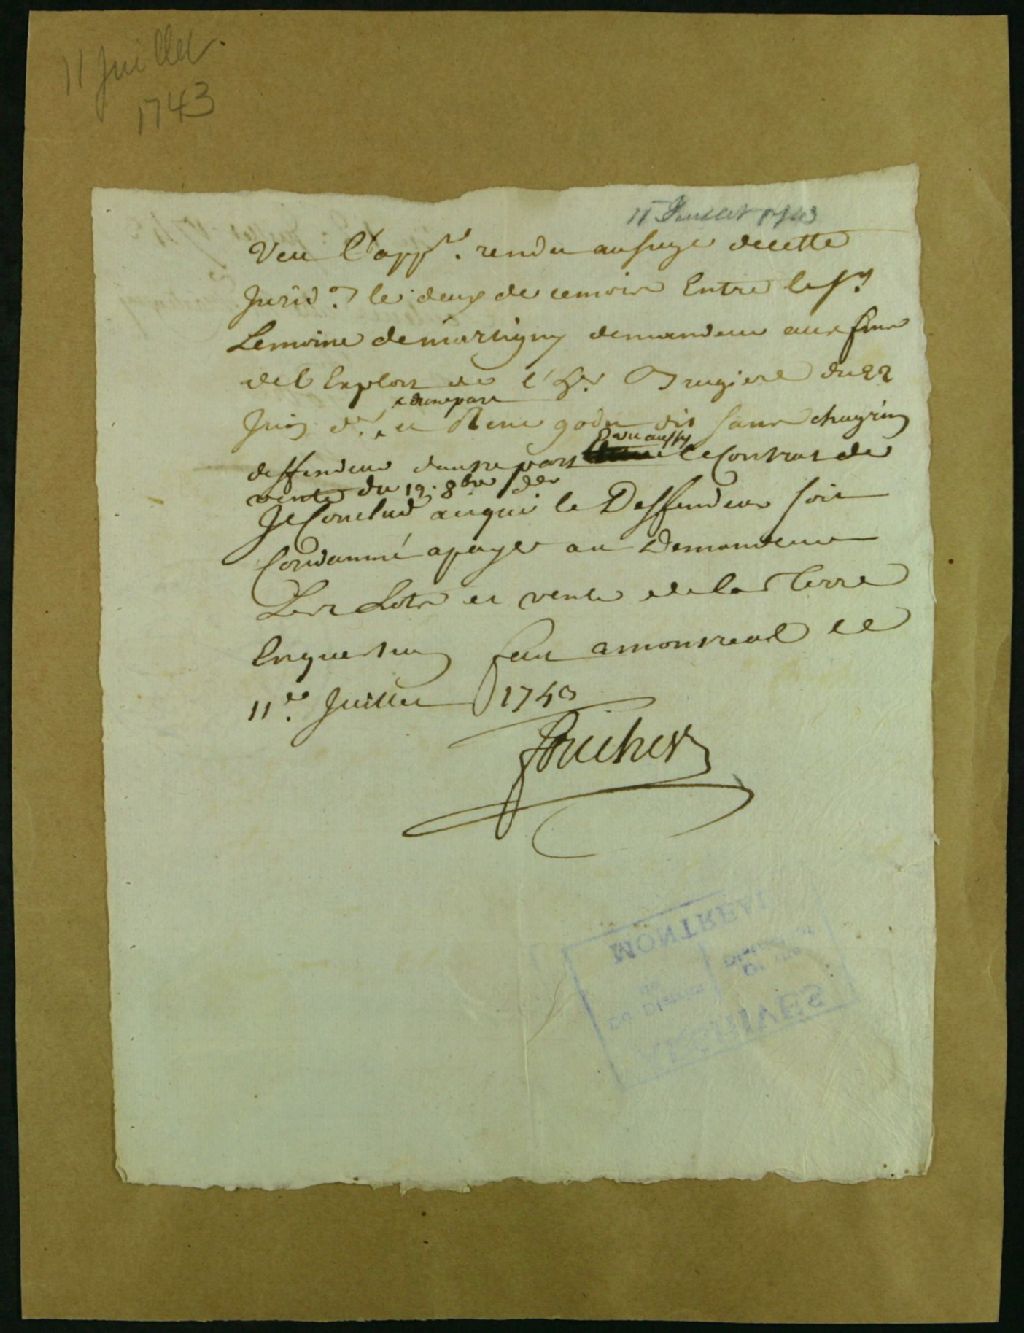 11 Juillet
1743
11 Juillet 1743
Veu l'appt. rendu au siege de cette
Jurid.on le deux de ce mois Entre le Sr.
Lemoine de martigny demandeur aux fins
de l'Exploit de l'hr. Brugiere du 22
Juin der. d'une part et René godu dit sans chagrin
deffendeur dautre part Veu aussy le Contrat de
vente du 12. 8bre der
Je Conclud a ce que le Deffendeur soit
Condamné a payer au Demandeur
Les Lots et vente de la Terre
En question fait a montreal le
11.e Juillet 1743
foucher
ARCHIVES
MONTREAL